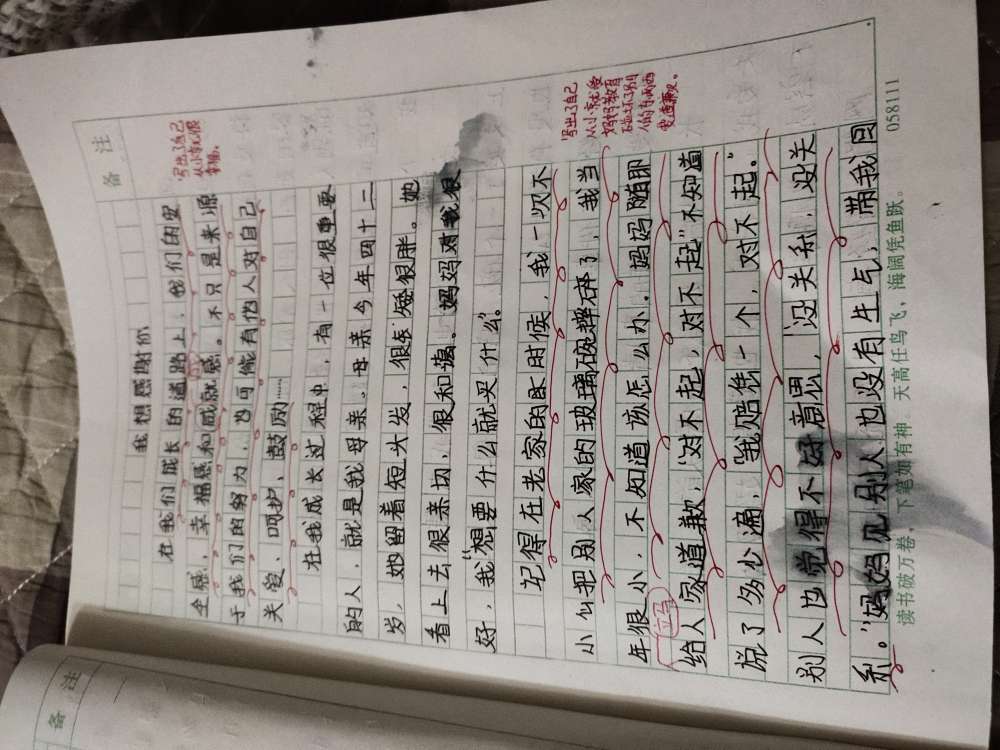 备 注
我想感谢你
在我们成长的道路上，我们的安
全感，幸福感和成就感。不只是来源
于我们的努力，也可能有他人对自己
关爱、呵护、鼓励……
在我成长过程中，有一位很重要
的人，就是我母亲，母亲今年四十二
岁，她留着短头发，很矮很胖。她
看上去很亲切，很和蔼。妈妈对我很
好，我“想要什么就买什么”。
记得在老家的的时候，我一次不
小心把别人家的玻璃碗摔碎了，我当
年很小，不知道该怎么办．妈妈随即
立马
给人家道歉，“对不起，对不起”不知道
说了多少遍，“我赔您一个，对不起．”
别人也觉得不好意思，“没关系，没关
系。”妈妈见别人也没有生气，带我回
写出了自己
从小就很
幸福。
写出了自己
从小就受
妈妈教育
碰坏了别
人的东西
要道歉。
读书破万卷，下笔如有神 天高任鸟飞，海阔凭鱼跃。
058111
备 注